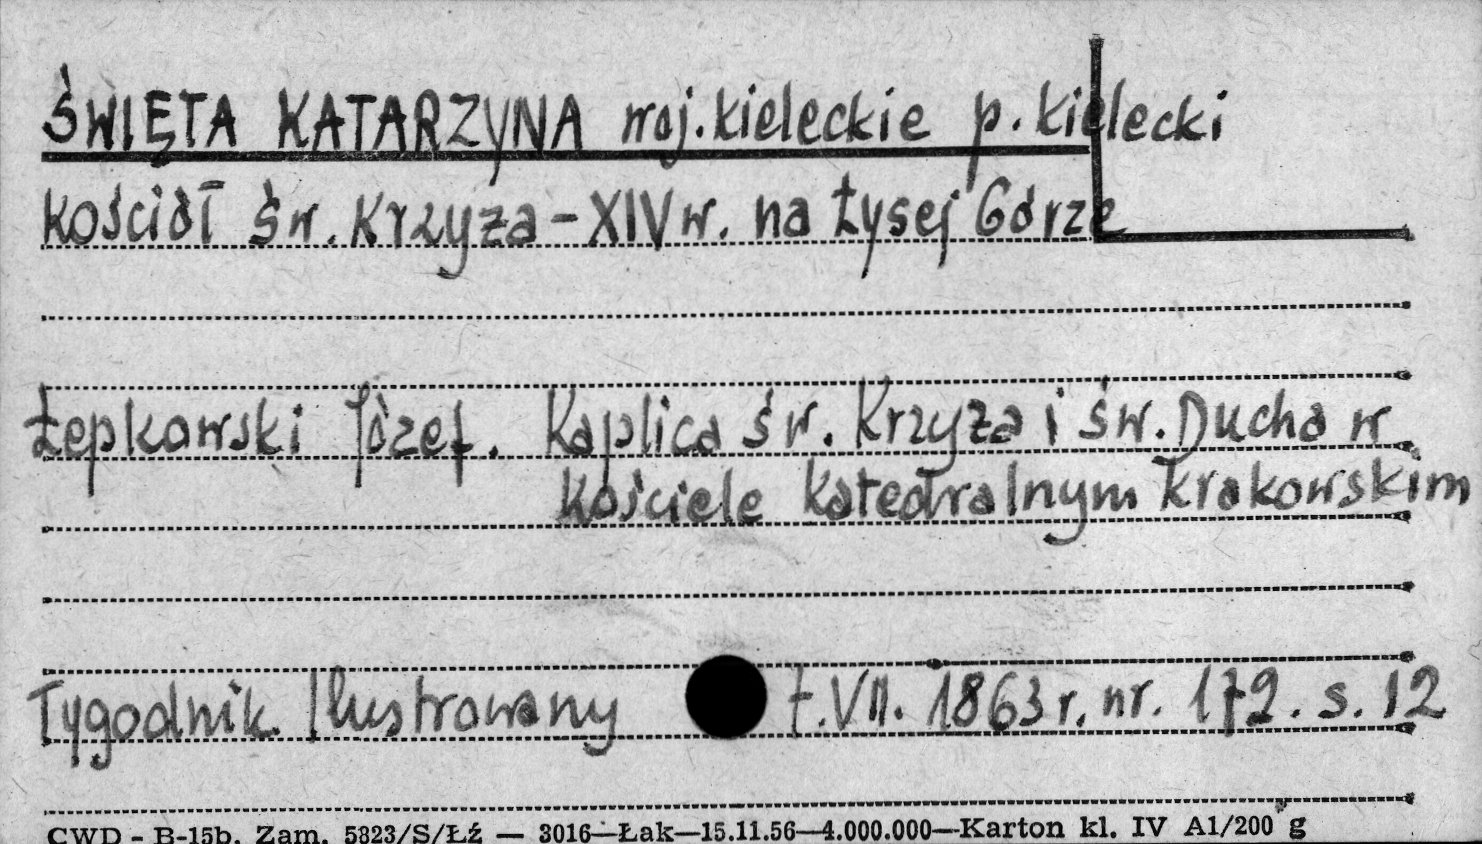 ŚWIĘTA KATARZYNA woj. kieleckie p. kielecki
kościół św. Krzyża - XIV w. na Łysej Górze
Łepkowski Józef. Kaplica św. Krzyża i św. Ducha w
Kościele Katedralnym Krakowskim
Tygodnik Ilustrowany t. VII. 1863 r. nr. 172. s. 12
CWD - B-15b. Zam. 5823/S/Łź — 3016—Łak—15.11.56—4.000.000—Karton kl. IV A1/200 g